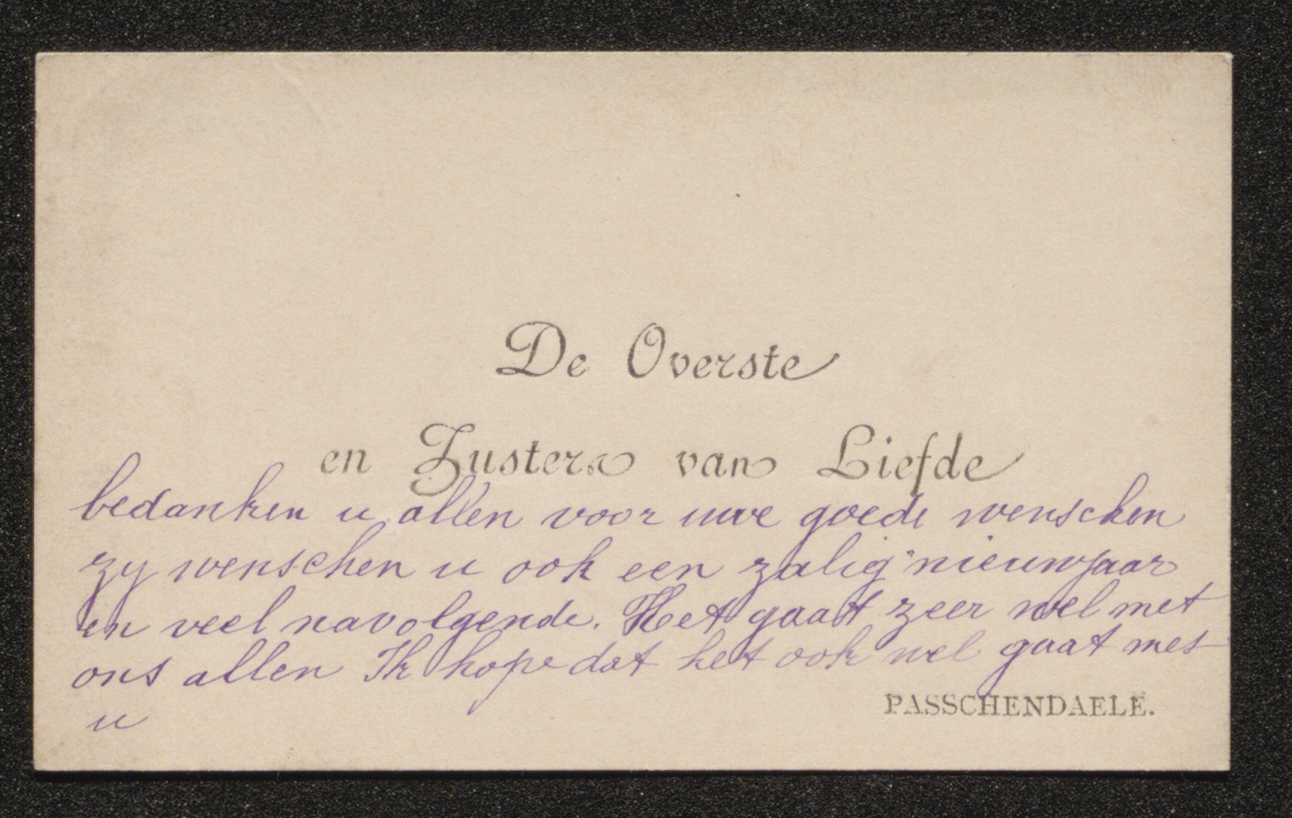 De Overste
en Zusters van Liefde
bedanken u allen voor uwe goede wenschen
zy wenschen u ook een zalig nieuwjaar
en veel navolgende. Het gaat zeer wel met
ons allen Ik hope dat het ook wel gaat met
u
PASSCHENDAELE.